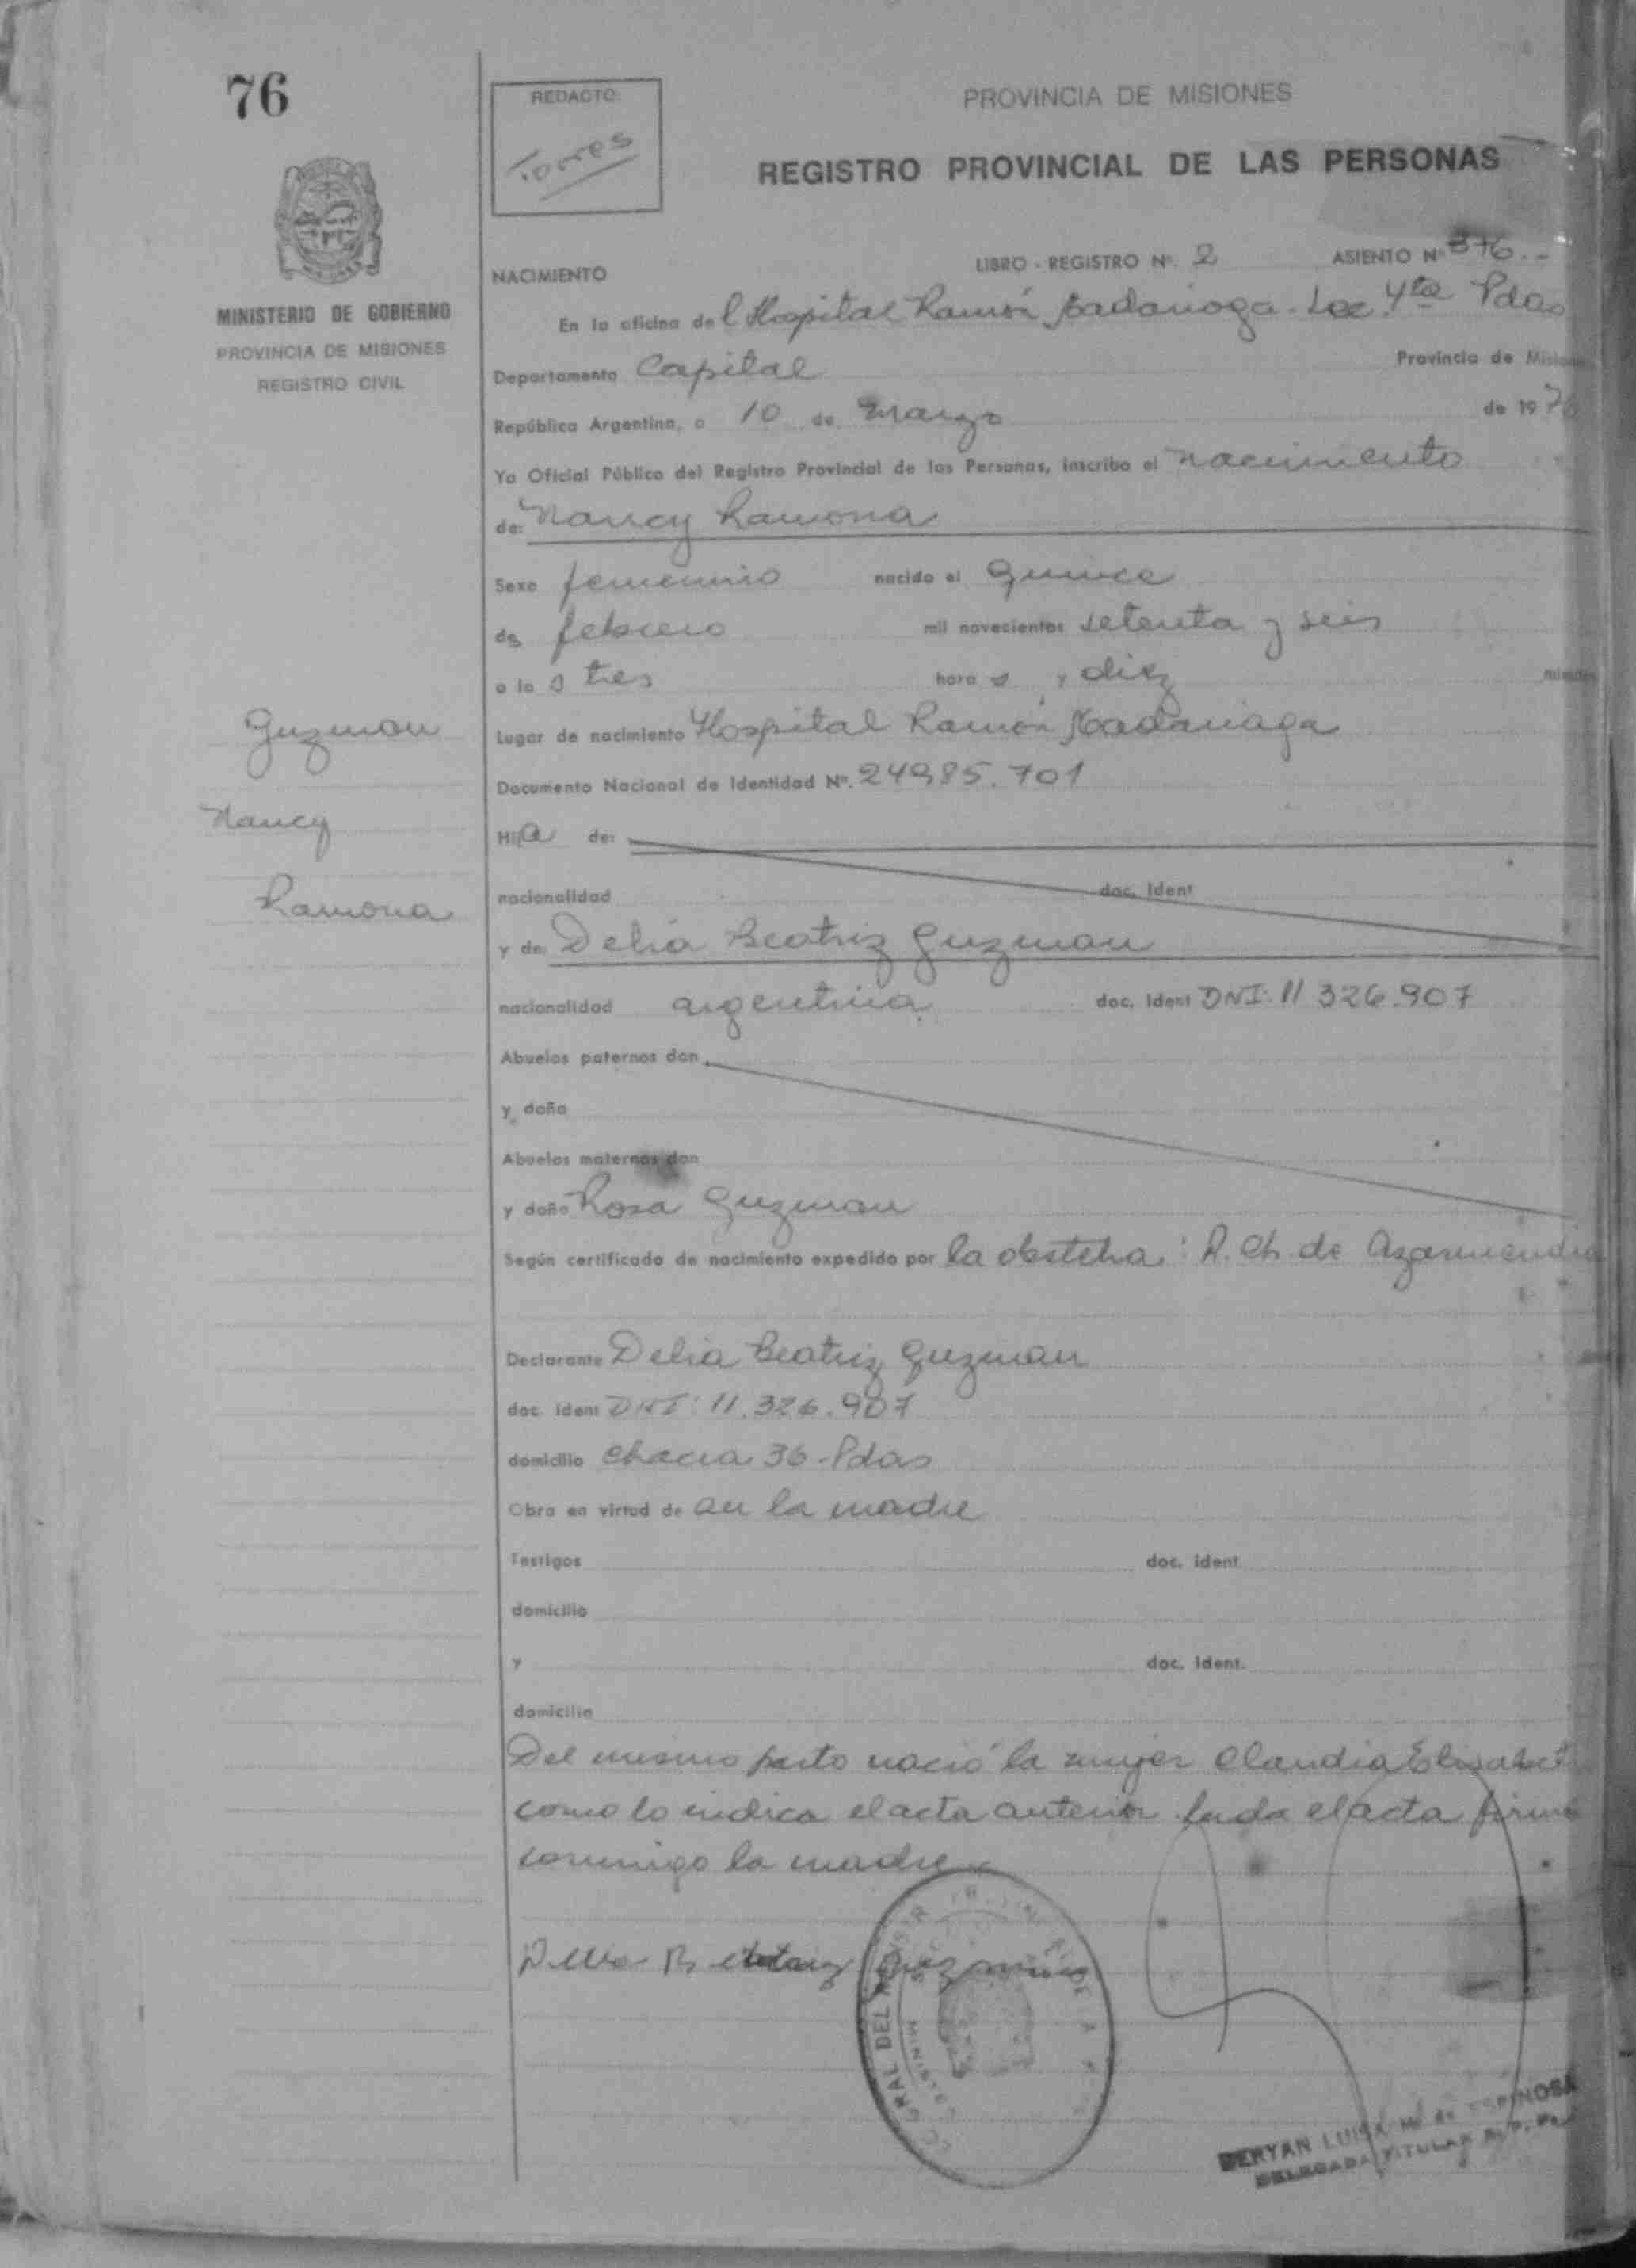 76
REDACTO:
Torres
PROVINCIA DE MISIONES
REGISTRO PROVINCIAL DE LAS PERSONAS
MINISTERIO DE GOBIERNO
PROVINCIA DE MISIONES
REGISTRO CIVIL
NACIMIENTO
LIBRO - REGISTRO Nº. 2 ASIENTO Nº 376.-
En la oficina del Hospital Ramón Madariaga - Sec. 4ta Pdas
Departamento Capital Provincia de Misiones
República Argentina, a 10 de Marzo de 1976
Yo Oficial Público del Registro Provincial de las Personas, inscribo el nacimiento
de: Nancy Ramona
Sexo femenino nacido el quince
de febrero mil novecientos setenta y seis
a las tres horas y diez minutos
Lugar de nacimiento Hospital Ramón Madariaga
Documento Nacional de Identidad Nº. 24985.701
Guzman
Nancy
Ramona
Hija de:
nacionalidad doc. Ident
y de: Delia Beatriz Guzman
nacionalidad argentina doc. Ident DNI: 11 326.907
Abuelos paternos don
y doña
Abuelos maternos don
y doña Rosa Guzman
Según certificado de nacimiento expedido por la obstetra: R. Ch. de Azarmendia
Declarante Delia Beatriz Guzman
doc. ident DNI: 11.326.907
domicilio Chacra 36 - Pdas
Obra en virtud de ser la madre
Testigos doc. ident.
domicilio
y doc. Ident.
domicilio
Del mismo parto nació la mujer Claudia Elisabet
como lo indica el acta anterior. Leida el acta firma
conmigo la madre
Delia Beatriz Guzman
GRAL DEL
MINISTE
BERYAN LUISA M. de ESPINOSA
DELEGADA TITULAR R. P. P.